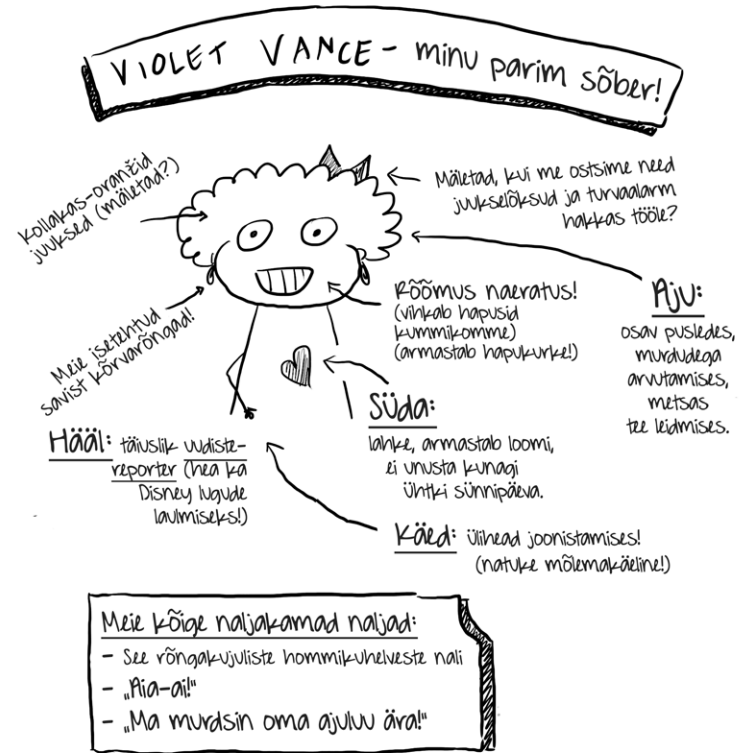 VIOLET VANCE - minu parim sõber!
kollakas-oranžid
juuksed (mäletad?)
Mäletad, kui me ostsime need
juukselõksud ja turvaalarm
hakkas tööle?
Meie isetehtud
savist kõrvarõngad!
Rõõmus naeratus!
(vihkab hapusid
kummikomme)
(armastab hapukurke!)
Aju:
osav pusledes,
murdudega
arvutamises,
metsas
tee leidmises.
Hääl: täiuslik uudiste-
reporter (hea ka
Disney lugude
laulmiseks!)
Süda:
lahke, armastab loomi,
ei unusta kunagi
ühtki sünnipäeva.
Käed: ülihead joonistamises!
(natuke mõlemakäeline!)
Meie kõige naljakamad naljad:
- See rõngakujuliste hommikuhelveste nali
- „Aia-ai!"
- „Ma murdsin oma ajuluu ära!"